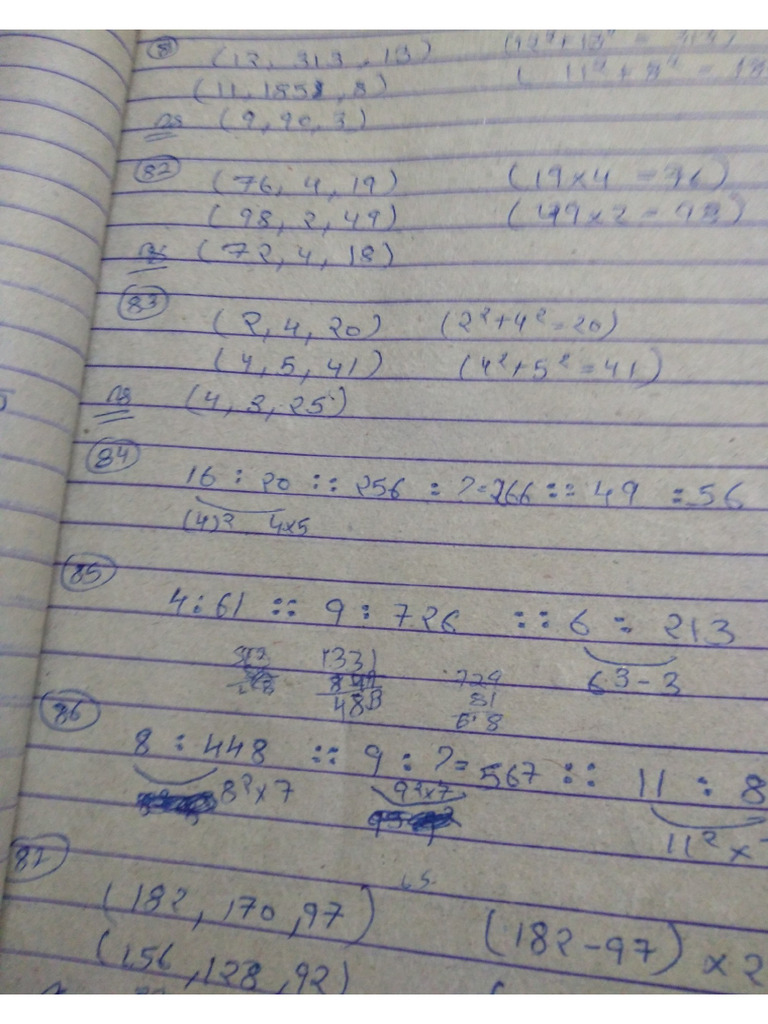 (12, 313, 13)
(11, 1851, 8)
ns (9, 90, 3)
82 (76, 4, 19) (19×4 = 76)
(98, 2, 49) (49×2 = 98)
ns (72, 4, 18)
83 (2, 4, 20) (2²+4²=20)
(4, 5, 41) (4²+5²=41)
ns (4, 3, 25)
84 16 : 20 :: 256 : ?=266 :: 49 : 56
(4)² 4×5
85
4:61 :: 9 : 726 :: 6 : 213
1331
729
6³-3
81
86
8 : 448 :: 9 : ?= 567 :: 11 : 8
8²×7 9²×7
11²×
87
(182, 170, 97) (182-97)×2
(156, 128, 92)